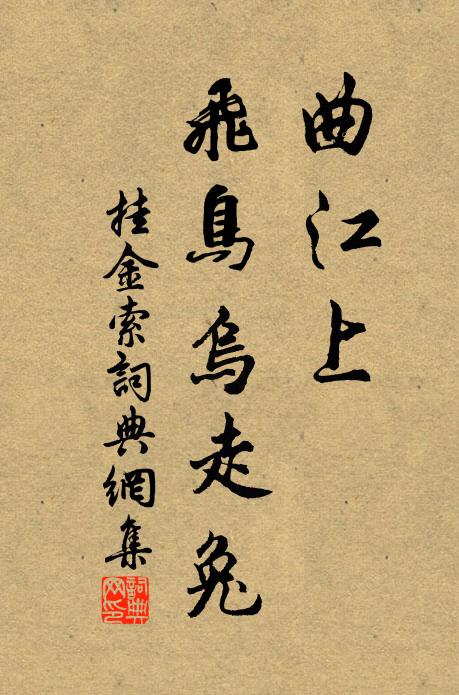 曲江上
飛鳥烏走兔
挂金索詞典網集
詞典網印